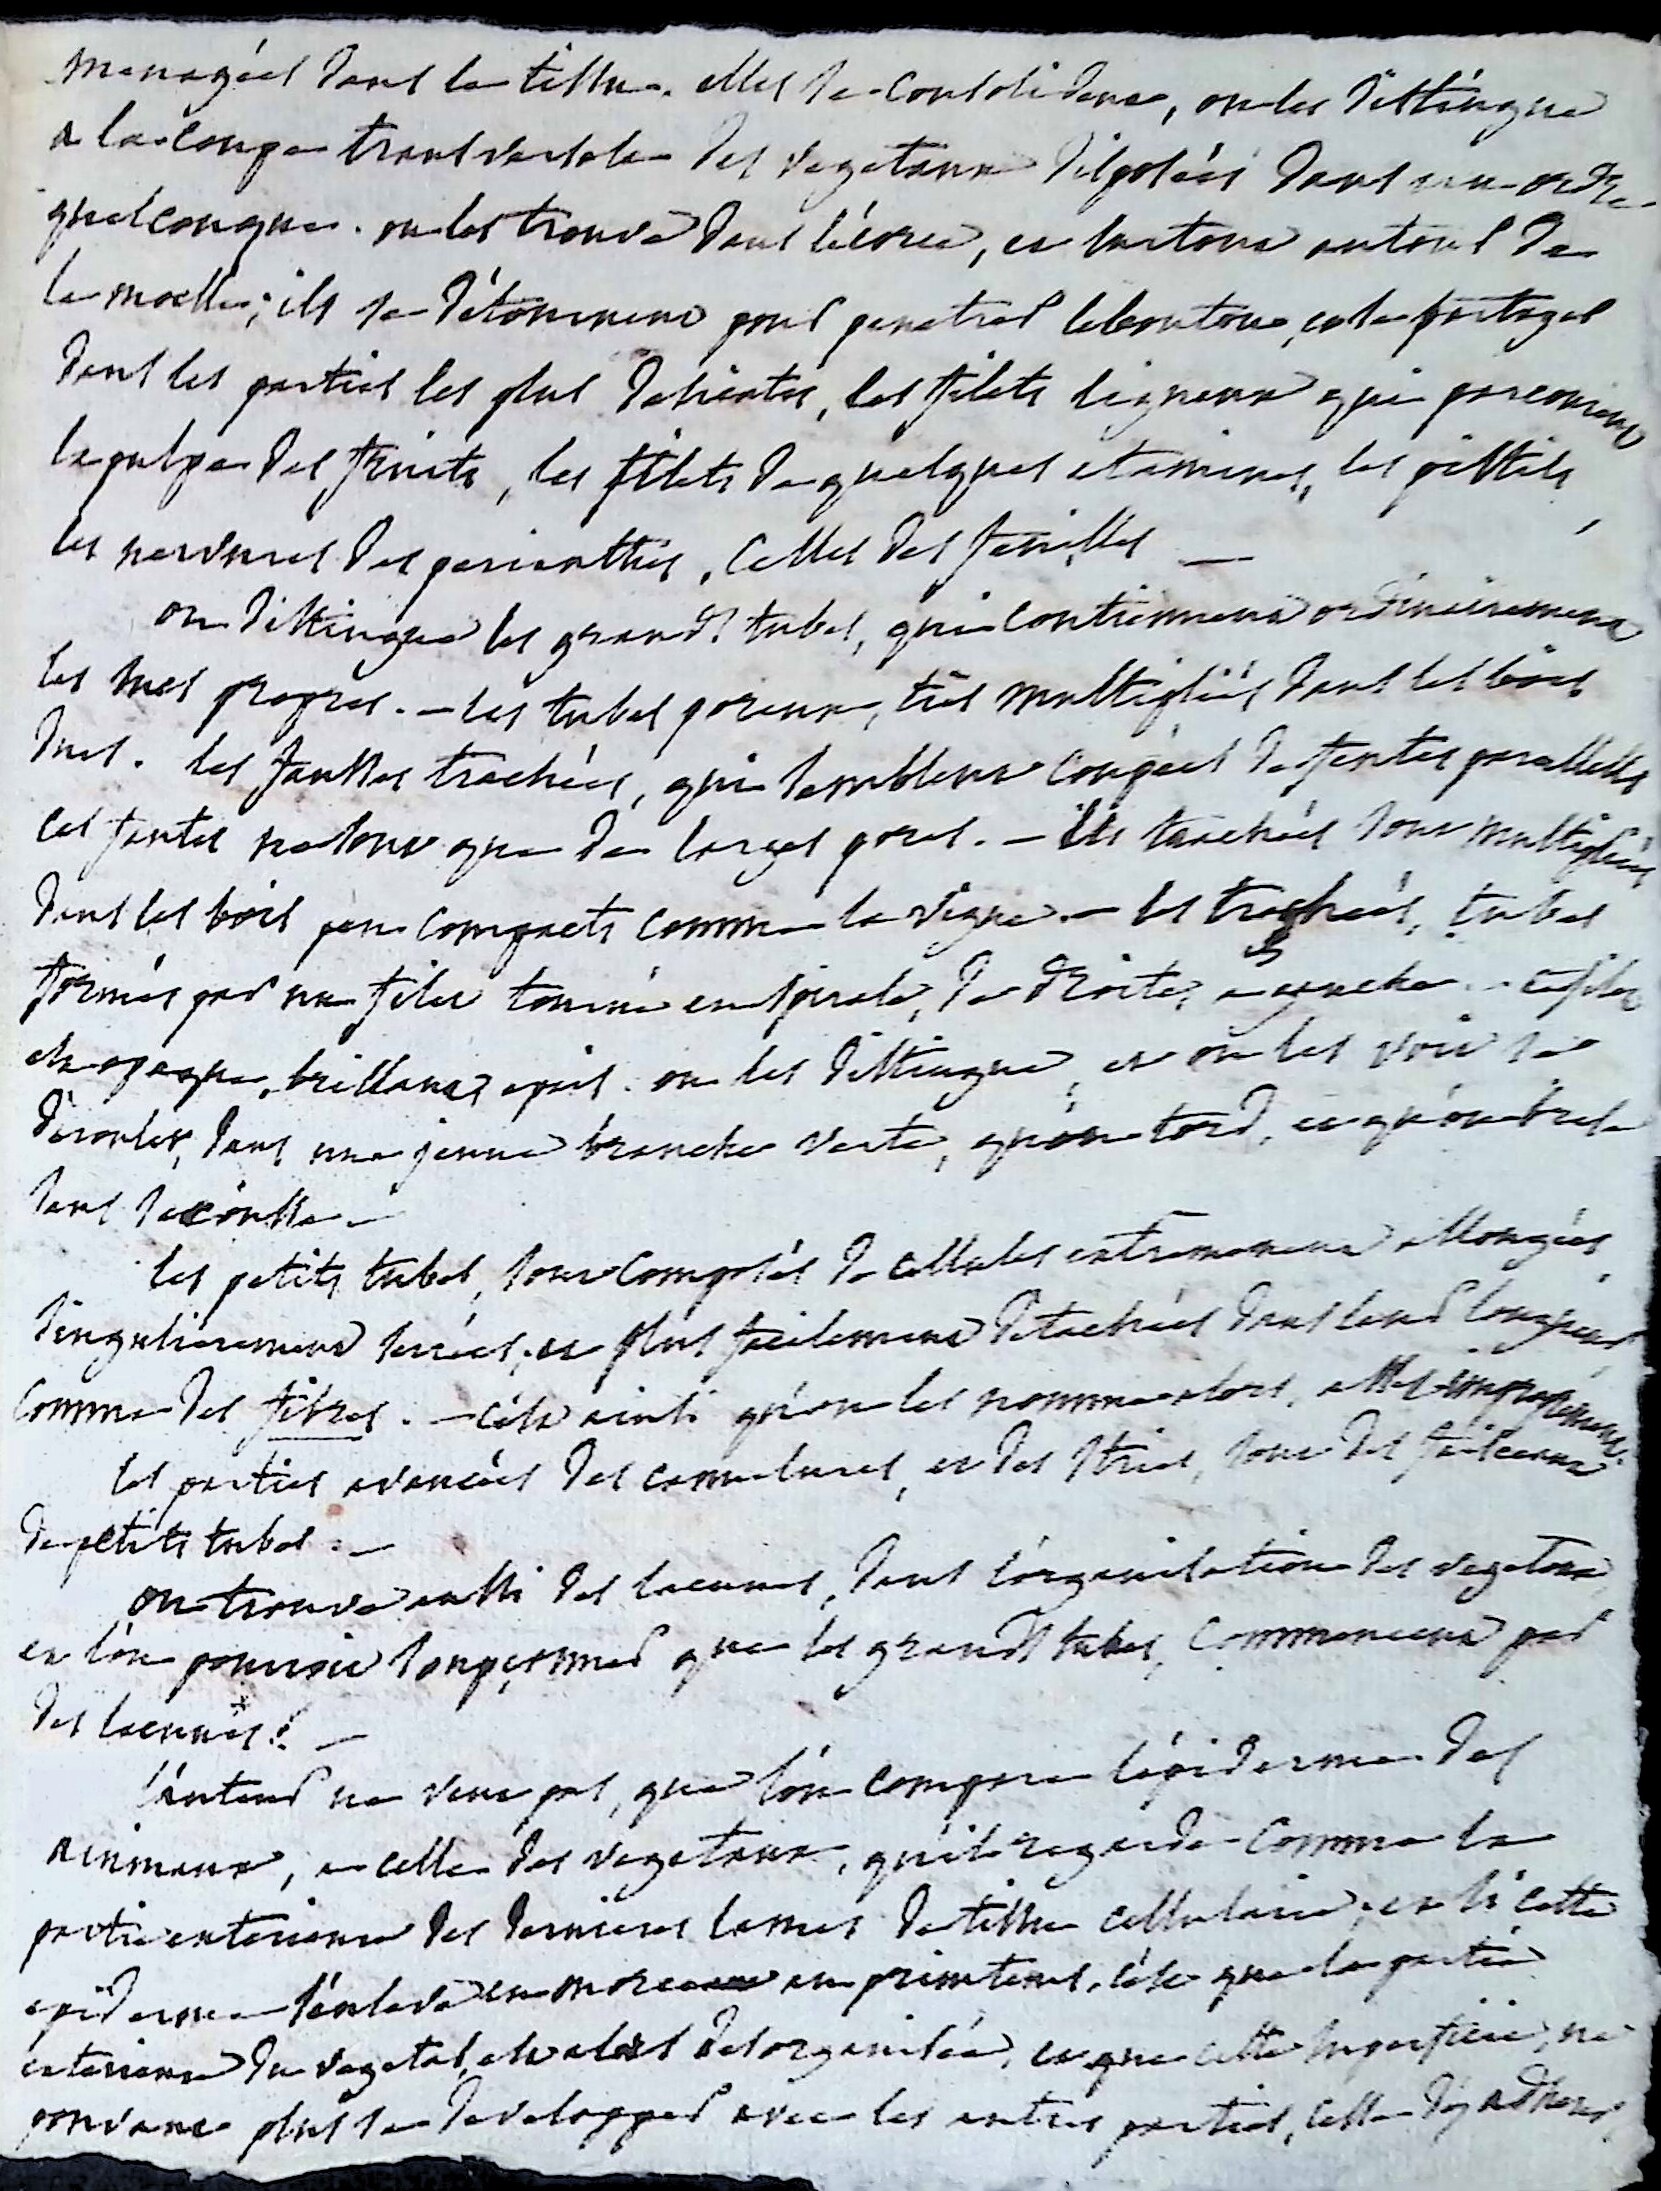 menagées dans le tissu. elles se consolident, on les distingue
a la coupe transversale des vegetaux disposées dans un ordre
quelconque. on les trouve dans l'écorce, et surtout autour de
la moelle; ils se détournent pour penetrer les boutons, et se partager
dans les parties les plus delicates, les filets ligneux qui parcourent
la pulpe des fruits, les filets de quelques etamines, les pistils,
les nervures des perianthes, celles des feuilles —
on distingue les grands tubes, qui contiennent ordinairement
les sucs propres. — les tubes poreux, très multipliés dans les bois
durs. les fausses trachées, qui semblent coupées de fentes paralleles
ces fentes ne sont que de larges pores. — les trachées sont multipliées
dans les bois peu compacts comme la vigne. — les trachées, tubes
formés par un filet tourné en spirale, de droite, a gauche. — ce filet
est opaque, brillant, epais. on les distingue, et on les voit se
dérouler, dans une jeune branche verte, qu'on tord, et qu'on brise
sans secousse —
les petits tubes, sont composés de cellules extremement allongées,
singulierement serrées, et plus facilement detachées dans leur longueur
comme des fibres. — c'est ainsi qu'on les nomme alors, assés improprement.
les parties avancées des cannelures, et des stries, sont des faisceaux
de petits tubes. —
on trouve aussi des lacunes, dans l'organisation des vegetaux
et l'on pourrait soupçonner que les grands tubes, commencent par
des lacunes*! —
l'auteur ne veut pas, que l'on compare l'épiderme des
animaux, a celle des vegetaux, qu'il regarde comme la
partie exterieure des dernieres lames de tissu cellulaire; et si cette
epiderme s'enleve en morceaux au printems, c'est que la partie
exterieure du vegetal, est alors desorganisée, et que cette superficie, ne
pouvant plus se developper avec les autres parties, cesse d'y adherer